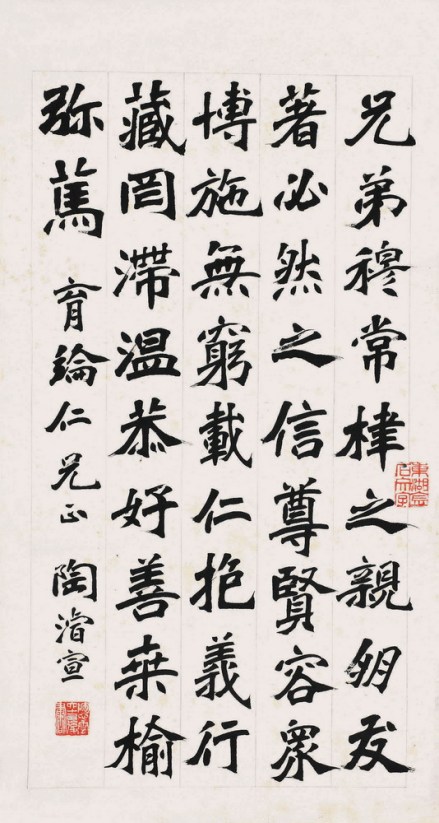 兄弟穆常棣之親朋友
著必然之信尊賢容眾
博施無窮載仁抱義行
藏罔滯溫恭好善桒榆
弥篤 育綸仁兄正 陶濬宣